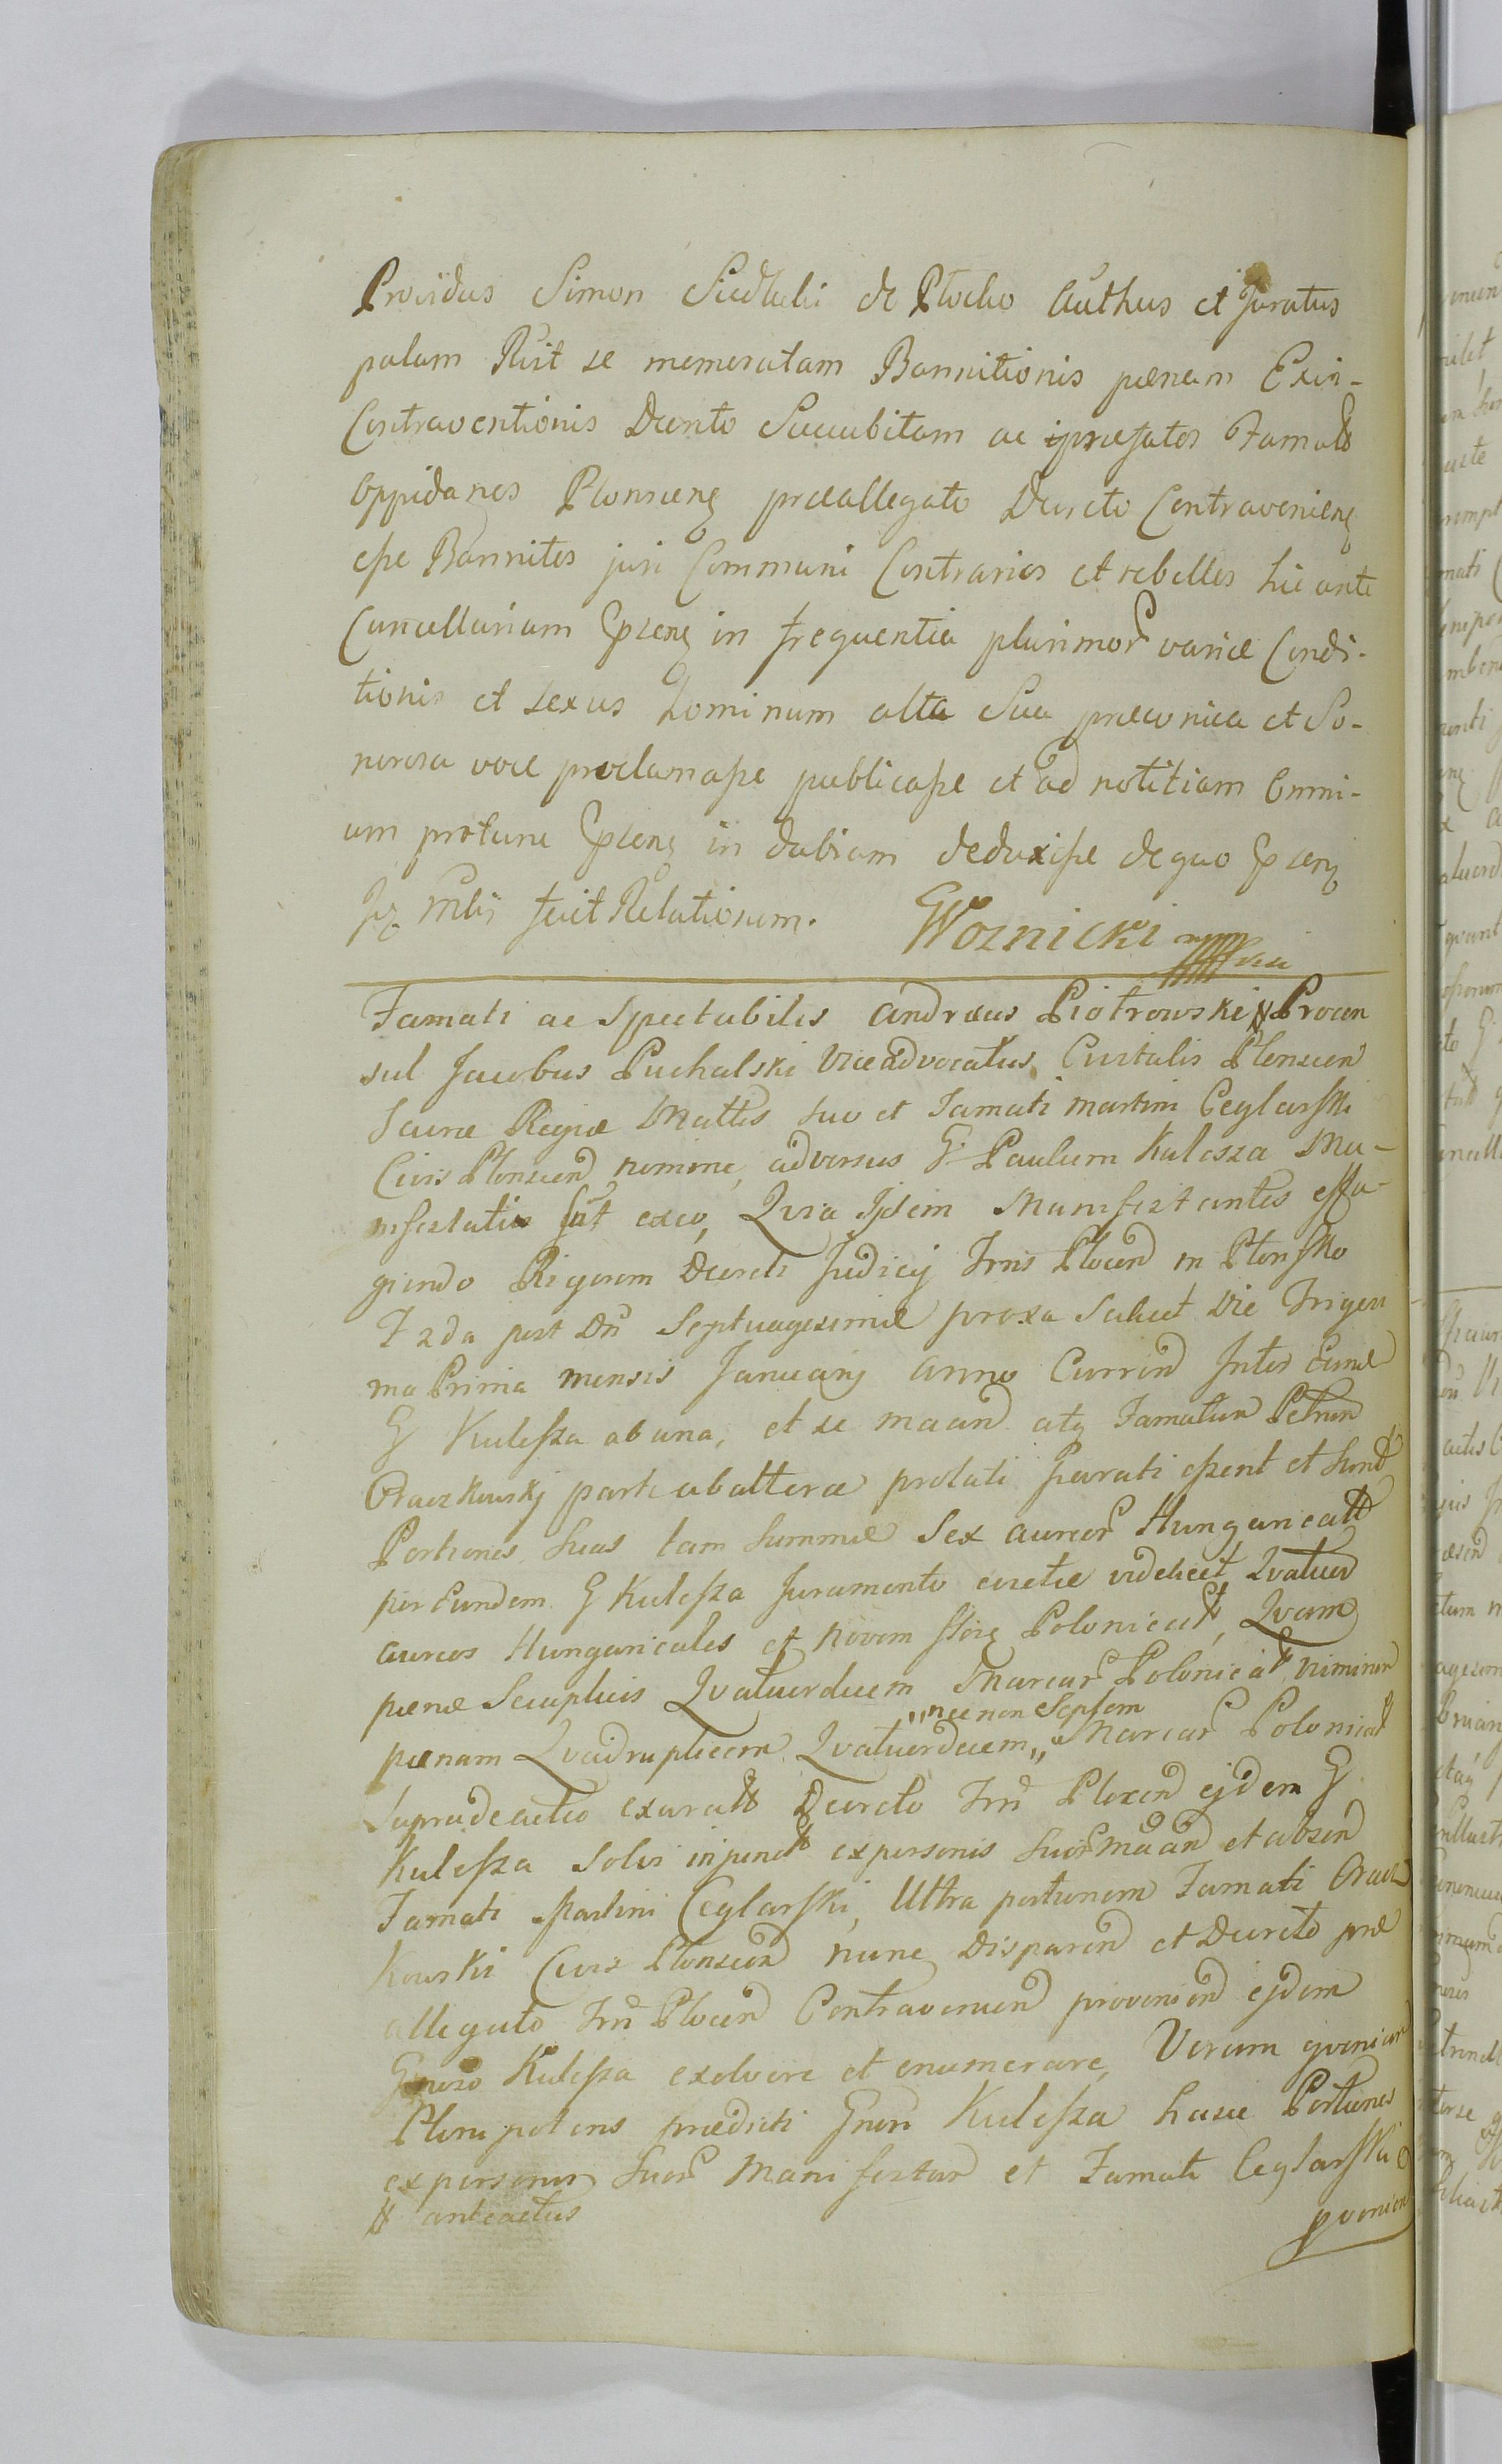 Providus Simon Siedlecki de Plocko Authus et Juratus
palam Rćit se memoratam Bannitionis pœnam Exin-
Contraventionis Decreto Succubitam ac præfatos Famatt
Oppidanos Plonscens præallegato Decreto Contraveniens
esse Bannitos juri Communi Contrarios et rebelles hic ante
Cancellariam Pplens in frequentia plurimor variæ Condi-
tionis et sexus hominum alta Sua præconica et So-
norosa voce proclamasse publicasse et ad notitiam Omni-
um protunc in dubiam deduxisse de quo
fecit Relationem. GWoznicki
Famati ac Spectabiles Andreas Piotrowski # Procon
sul Jacobus Puchalski Viceadvocatus Civitatis Plonscen
Sacræ Regiæ Mattis suo et Famati Martini Ceglarski
Civis Plonscen nomine, adversus G. Paulum Kulesza Ma-
nifestati sūt exeo, Quia Ipsem Manifestantes effu-
giendo Rigorem Decreti Judicij Trnis Plocen in Plonsko
F 2da post Dn̄ Septuagesimæ proxa Scilicet Die Trigesi
ma Prima mensis Januarij anno Curren Inter Eund
G Kulesza ab una, et se maan atq Famatum Petrum
Oraczkowskj parte ab altera prolati parati essent et sunt
Portiones suas tam summæ Sex aureor Hungaricatt
per Eundem G Kulesza Juramento evictæ videlicet Qvatuor
aureos Hungaricales et novem flōrs Polonicat, Qvam
pœnæ Qvatuordecem Marcar Polonicat nimirum
pœnam Qvadruplicem Qvatuordecem „necnon Septem„ Marcar Polonicat
exaratt Decreto Trn̄ Plocen ejdem G
Kulesza Solvi injunctt expersonis suor maan et absen
Famati Martini Ceglarski, Ultra portionem Famati Oracz
kowski Civis Plonscen nunc Disparen et Decreto præ
allegato Trn̄ Plocen Contravenien provenien ejdem
Gneroso Kulesza exolvere et enumerare, Verum qvoniam
Plenipotens prædicti Gnēri Kulesza hasce Portiones
expersonis suor Manifestan et Famati Ceglarski
# anteactus
pvenien